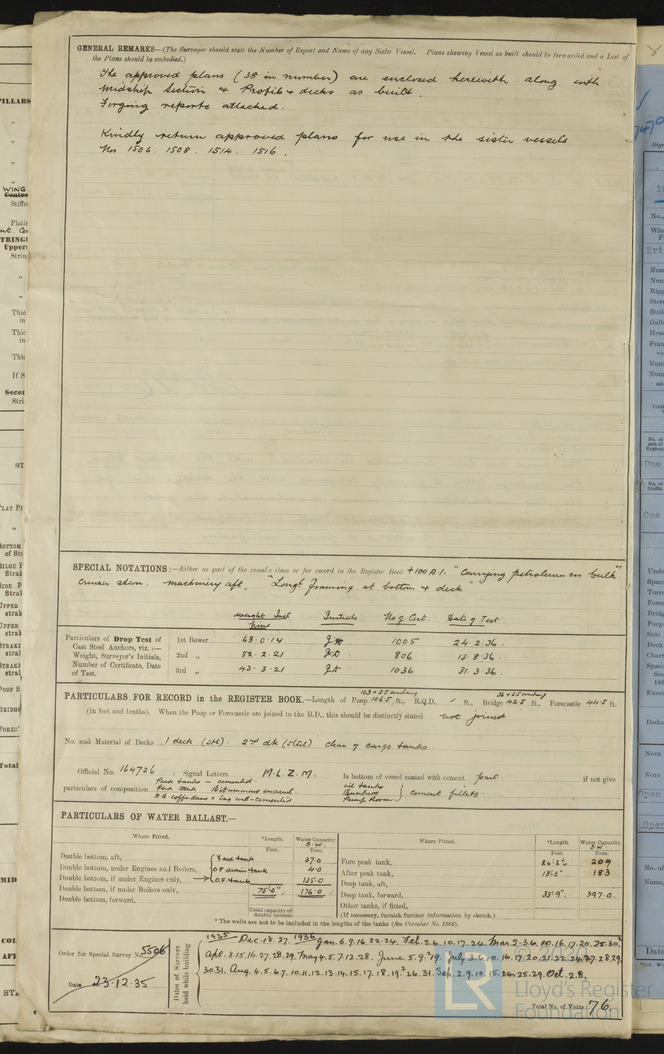 GENERAL REMARKS—(The Surveyor should state the Number of Report and Name of any Sister Vessel. Plans showing Vessel as built should be forwarded and a List of
the Plans should be embodied.)
The approved plans (38 in number) are enclosed herewith along with
Midship Section & Profile & decks as built.
Forging reports attached.
Kindly return approved plans for use in the sister vessels
Nos 1506. 1508. 1514. 1516.
SPECIAL NOTATIONS:—Either as part of the vessel's class or for record in the Register Book +100 A.1. "Carrying petroleum in bulk"
Cruiser stern. machinery aft. "Longl framing at bottom & deck"
Weight Initials No of Cert. Date of Test
Particulars of Drop Test of
Cast Steel Anchors, viz. :—
Weight, Surveyor's Initials,
Number of Certificate, Date
of Test.
1st Bower 63.0.14 1005 24.2.36.
2nd „ 52.2.21 806 13.8.36.
3rd „ 43.3.21 1036 31.3.36.
PARTICULARS FOR RECORD in the REGISTER BOOK.—Length of Poop 106.5 ft., R.Q.D. ft., Bridge 42.5 ft., Forecastle 44.5 ft.
(in feet and tenths). When the Poop or Forecastle are joined to the B.D., this should be distinctly stated not joined
No. and Material of Decks 1 deck (stl). 2nd dk (steel) clear of cargo tanks.
Official No. 164726 ; Signal Letters M.L.Z.M. Is bottom of vessel coated with cement part. if not give
particulars of composition Peak tanks — cemented.
Feed tank Bitumous enamel.
oil tanks
Bunkers
Pump Room } cement fillets.
PARTICULARS OF WATER BALLAST.—
Where Fitted. *Length. Feet. Water Capacity. S.W. Tons. Where Fitted. *Length. Feet. Water Capacity. S.W. Tons.
Double bottom, aft, Feed tank 37.0 Fore peak tank, 209
Double bottom, under Engines and Boilers, O.F. drain tank 4.0 After peak tank, 183
Double bottom, if under Engines only, O.F. tank 135.0 Deep tank, aft,
Double bottom, if under Boilers only, 75'.0" 176.0 Deep tank, forward, 33'.9". 397.0
Double bottom, forward, Other tanks, if fitted,
Total capacity of double bottom (If necessary, furnish further information by sketch.)
* The wells are not to be included in the lengths of the tanks (See Circular No. 1284).
Order for Special Survey No. 5506
Date 23.12.35
Dates of Surveys held while building
1935 Dec. 18. 27. 1936 Jan. 6. 9. 16. 22. 24. Feb. 5. 6. 10. 17. 24. Mar. 2. 3. 6. 10. 16. 17. 20. 25. 30.
Apl. 8. 15. 16. 27. 28. 29. May 4. 5. 7. 12. 28. June 5. 9. 19. July 3. 6. 10. 16. 17. 20. 21. 22. 24. 27. 28. 29.
30. 31. Aug. 4. 5. 6. 7. 10. 11. 12. 13. 14. 15. 17. 18. 19. 26. 31. Sep. 2. 9. 10. 15. 25. 29. Oct. 2. 8.
Total No. of Visits 76.
© 2020
LR
Lloyd's Register
Foundation